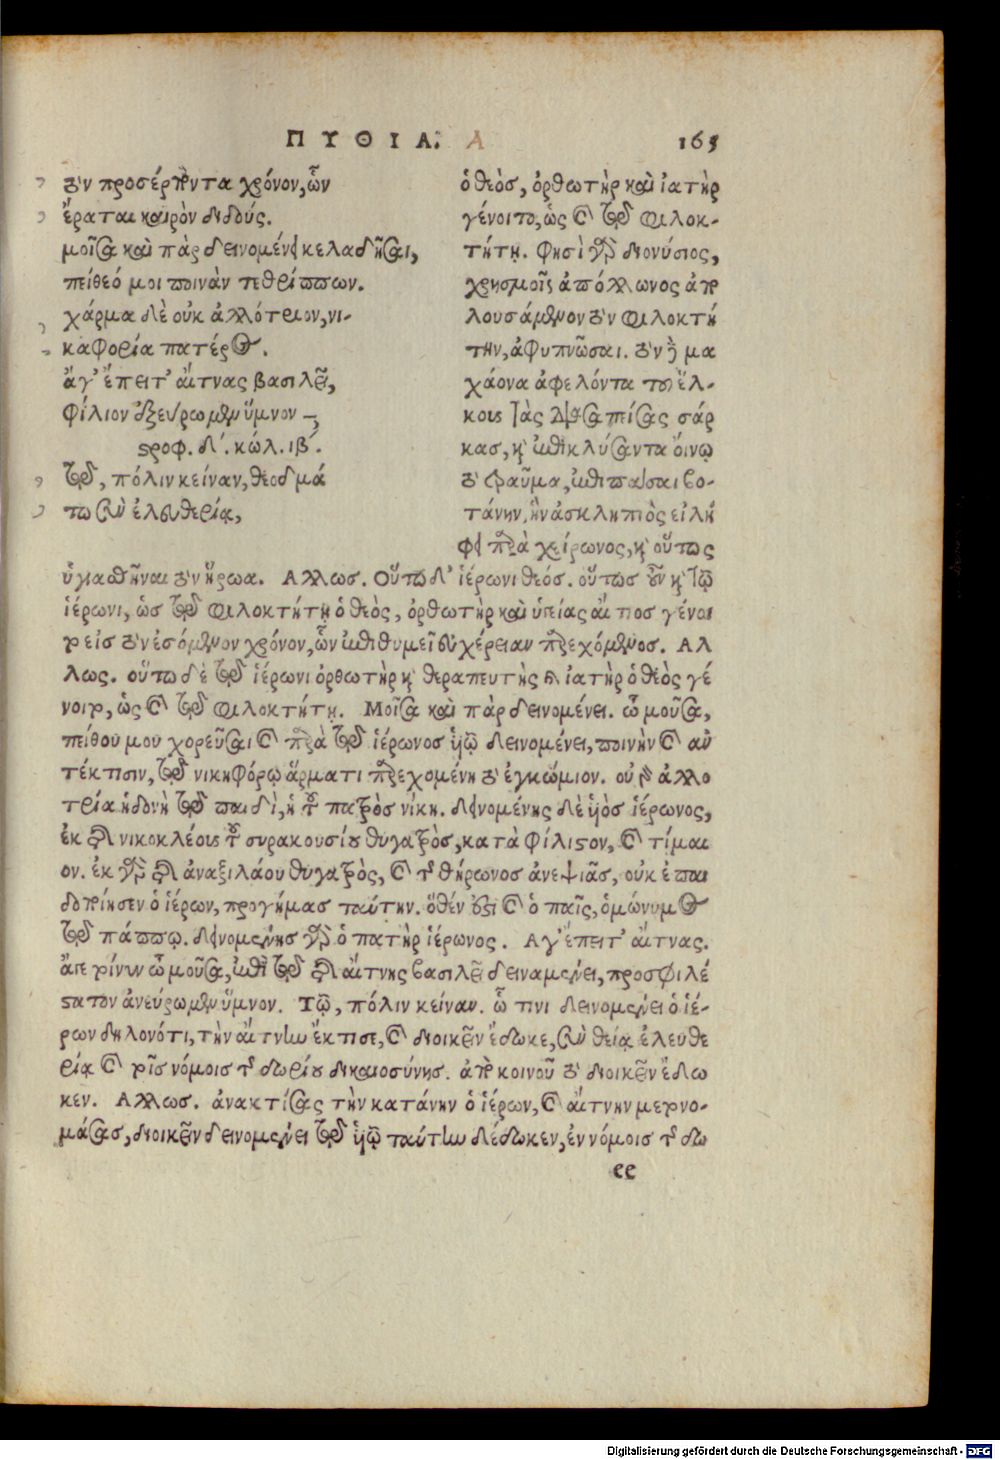 ΠΥΘΙΑ. Α 165
τὸν προσέρποντα χρόνον, ὧν
ἔραται καιρὸν διδούς.
μοῖσα καὶ πὰρ δεινομένει κελαδῆσαι,
πείθεό μοι ποινὰν τεθρίππων.
χάρμα δὲ οὐκ ἀλλότριον, νι-
καφορία πατέρος.
ἄγ' ἔπειτ' αἴτνας βασιλεῖ,
φίλιον ἐξεύρωμεν ὕμνον
στροφ. δ'. κώλ. ιβ'.
τῷ, πόλιν κείναν, θεοδμά
τω σὺν ἐλευθερίᾳ,
ὁ θεὸς, ὀρθωτὴρ καὶ ἰατὴρ
γένοιτο, ὡς καὶ τῷ φιλοκ-
τήτῃ. φησὶ γὰρ διονύσιος,
χρησμοῖς ἀπόλλωνος ἀπο
λουσάμενον τὸν φιλοκτή
την, ἀφυπνῶσαι. τὸν δὲ μα
χάονα ἀφελόντα τοῦ ἕλ-
κους τὰς διασαπείσας σάρ
κας, καὶ ἐπικλύσαντα οἴνῳ
τὸ τραῦμα, ἐπιπάσαι βο-
τάνην, ἣν ἀσκληπιὸς εἰλή
φει παρὰ χείρωνος, καὶ οὕτως
ὑγιασθῆναι τὸν ἥρωα. Αλλως. Οὕτω δ' ἱέρωνι θεός. οὕτως οὖν καὶ τῷ
ἱέρωνι, ὡς τῷ φιλοκτήτῃ ὁ θεὸς, ὀρθωτὴρ καὶ ὑγείας αἴτιος γένοι
το εἰς τὸν ἐσόμενον χρόνον, ὧν ἐπιθυμεῖ εὐχέρειαν παρεχόμενος. Αλ
λως. οὕτω δὲ τῷ ἱέρωνι ὀρθωτὴρ καὶ θεραπευτὴς καὶ ἰατὴρ ὁ θεὸς γέ
νοιτο, ὡς καὶ τῷ φιλοκτήτῃ. Μοῖσα καὶ πὰρ δεινομένει. ὦ μοῦσα,
πείθου μου χορεῦσαι καὶ παρὰ τῷ ἱέρωνος υἱῷ δεινομένει, ποινὴν καὶ αὖ
τέκτισιν, τῷ νικηφόρῳ ἅρματι παρεχομένη τὸ ἐγκώμιον. οὐ γὰρ ἀλλο
τρία ἡδονὴ τῷ παιδὶ, ἡ τοῦ πατρὸς νίκη. δεινομένης δὲ υἱὸς ἱέρωνος,
ἐκ τῆς νικοκλέους τοῦ συρακουσίου θυγατρὸς, κατὰ φίλιστον, καὶ τίμαι
ον. ἐκ γὰρ τῆς ἀναξιλάου θυγατρὸς, καὶ τῆς θήρωνος ἀνεψιᾶς, οὐκ ἐπαι
δοποίησεν ὁ ἱέρων, προγήμας ταύτην. ὅθέν ἐστι καὶ ὁ παῖς, ὁμώνυμος
τῷ πάππῳ. δεινομένης γὰρ ὁ πατὴρ ἱέρωνος. Αγ' ἔπειτ' αἴτνας.
ἄγε τοίνυν ὦ μοῦσα, ἐπὶ τῷ τῆς αἴτνης βασιλεῖ δειναμένει, προσφιλέ
στατον ἀνεύρωμεν ὕμνον. Τῷ, πόλιν κείναν. ᾧ τινι δεινομένει ὁ ἱέ-
ρων δηλονότι, τὴν αἴτνην ἔκτισε, καὶ διοικεῖν ἔδωκε, σὺν θείᾳ ἐλευθε
ρίᾳ καὶ τοῖς νόμοις τῆς δωρίου δικαιοσύνης. ἀπὸ κοινοῦ τὸ διοικεῖν ἔδω
κεν. Αλλως. ἀνακτίσας τὴν κατάνην ὁ ἱέρων, καὶ αἴτνην μετονο-
μάσας, διοικεῖν δεινομένει τῷ υἱῷ ταύτην δέδωκεν, ἐν νόμοις τῆς δω
ee
Digitalisierung gefördert durch die Deutsche Forschungsgemeinschaft - DFG